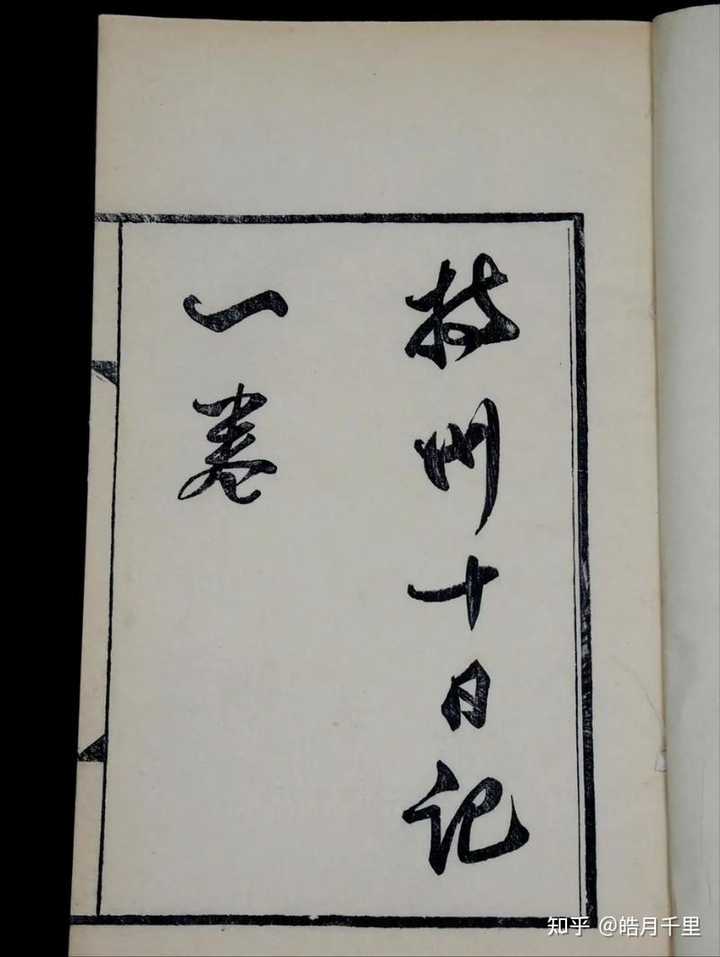 揚州十日記
一卷
知乎 @皓月千里